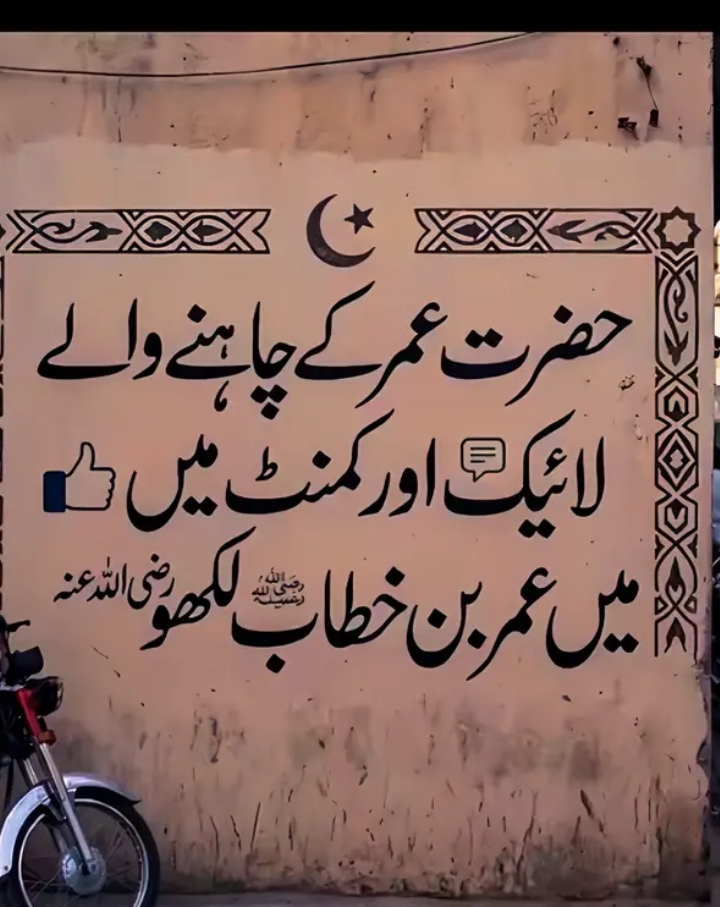 حضرت عمر کے چاہنے والے
لائیک اور کمنٹ میں
میں عمر بن خطاب لکھو رضی اللہ عنہ